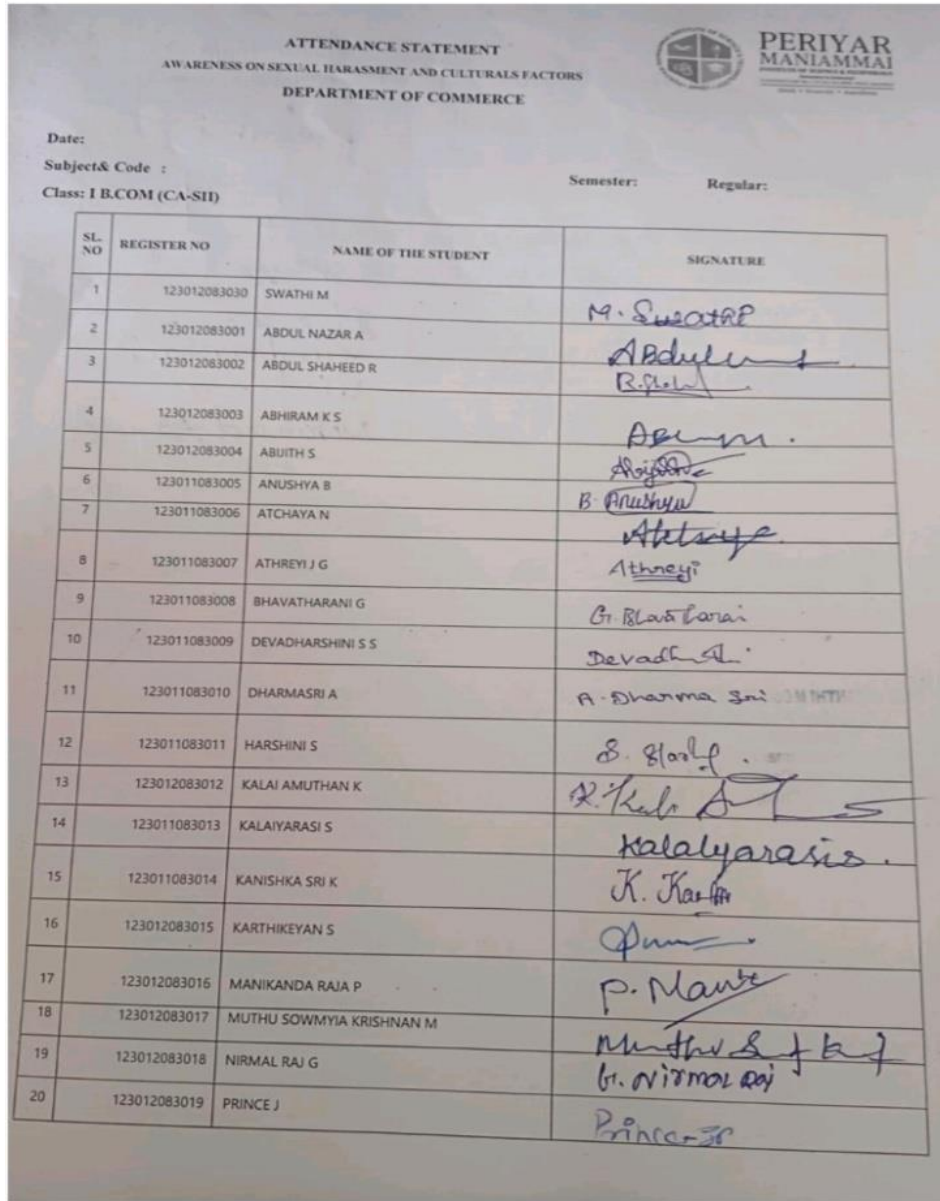 ATTENDANCE STATEMENT
AWARENESS ON SEXUAL HARASMENT AND CULTURALS FACTORS
DEPARTMENT OF COMMERCE
PERIYAR
MANIAMMAI
Date:
Subject& Code :
Semester: Regular:
Class: I B.COM (CA-SII)
SL. NO REGISTER NO NAME OF THE STUDENT SIGNATURE
1 123012083030 SWATHI M M. Swathi
2 123012083001 ABDUL NAZAR A
3 123012083002 ABDUL SHAHEED R
4 123012083003 ABHIRAM K S
5 123012083004 ABIJITH S
6 123011083005 ANUSHYA B B. Anushya
7 123011083006 ATCHAYA N
8 123011083007 ATHREYI J G Athreyi
9 123011083008 BHAVATHARANI G
10 123011083009 DEVADHARSHINI S S
11 123011083010 DHARMASRI A A. Dharma Sri
12 123011083011 HARSHINI S
13 123012083012 KALAI AMUTHAN K
14 123011083013 KALAIYARASI S Kalaiyarasi S.
15 123011083014 KANISHKA SRI K
16 123012083015 KARTHIKEYAN S
17 123012083016 MANIKANDA RAJA P
18 123012083017 MUTHU SOWMYIA KRISHNAN M
19 123012083018 NIRMAL RAJ G G. Nirmal Raj
20 123012083019 PRINCE J